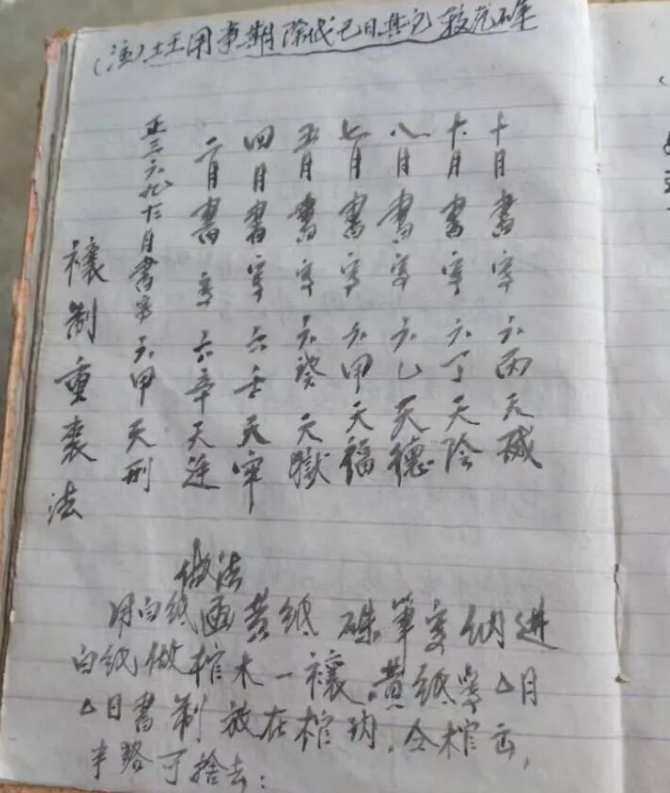 (注)土王用事期除戊己日其它
禳制重喪法
正三六九十二月書字六甲天刑
二月書字六辛天
四月書字六壬天牢
五月書字六癸天獄
七月書字六甲天福
八月書字六乙天德
十一月書字六丁天陰
十月書字六丙天威
做法
用白紙画黄紙 硃筆寫納進
白紙做棺木一 黄紙寫△月
△日書制放在棺内,仝棺
半路可捨去: